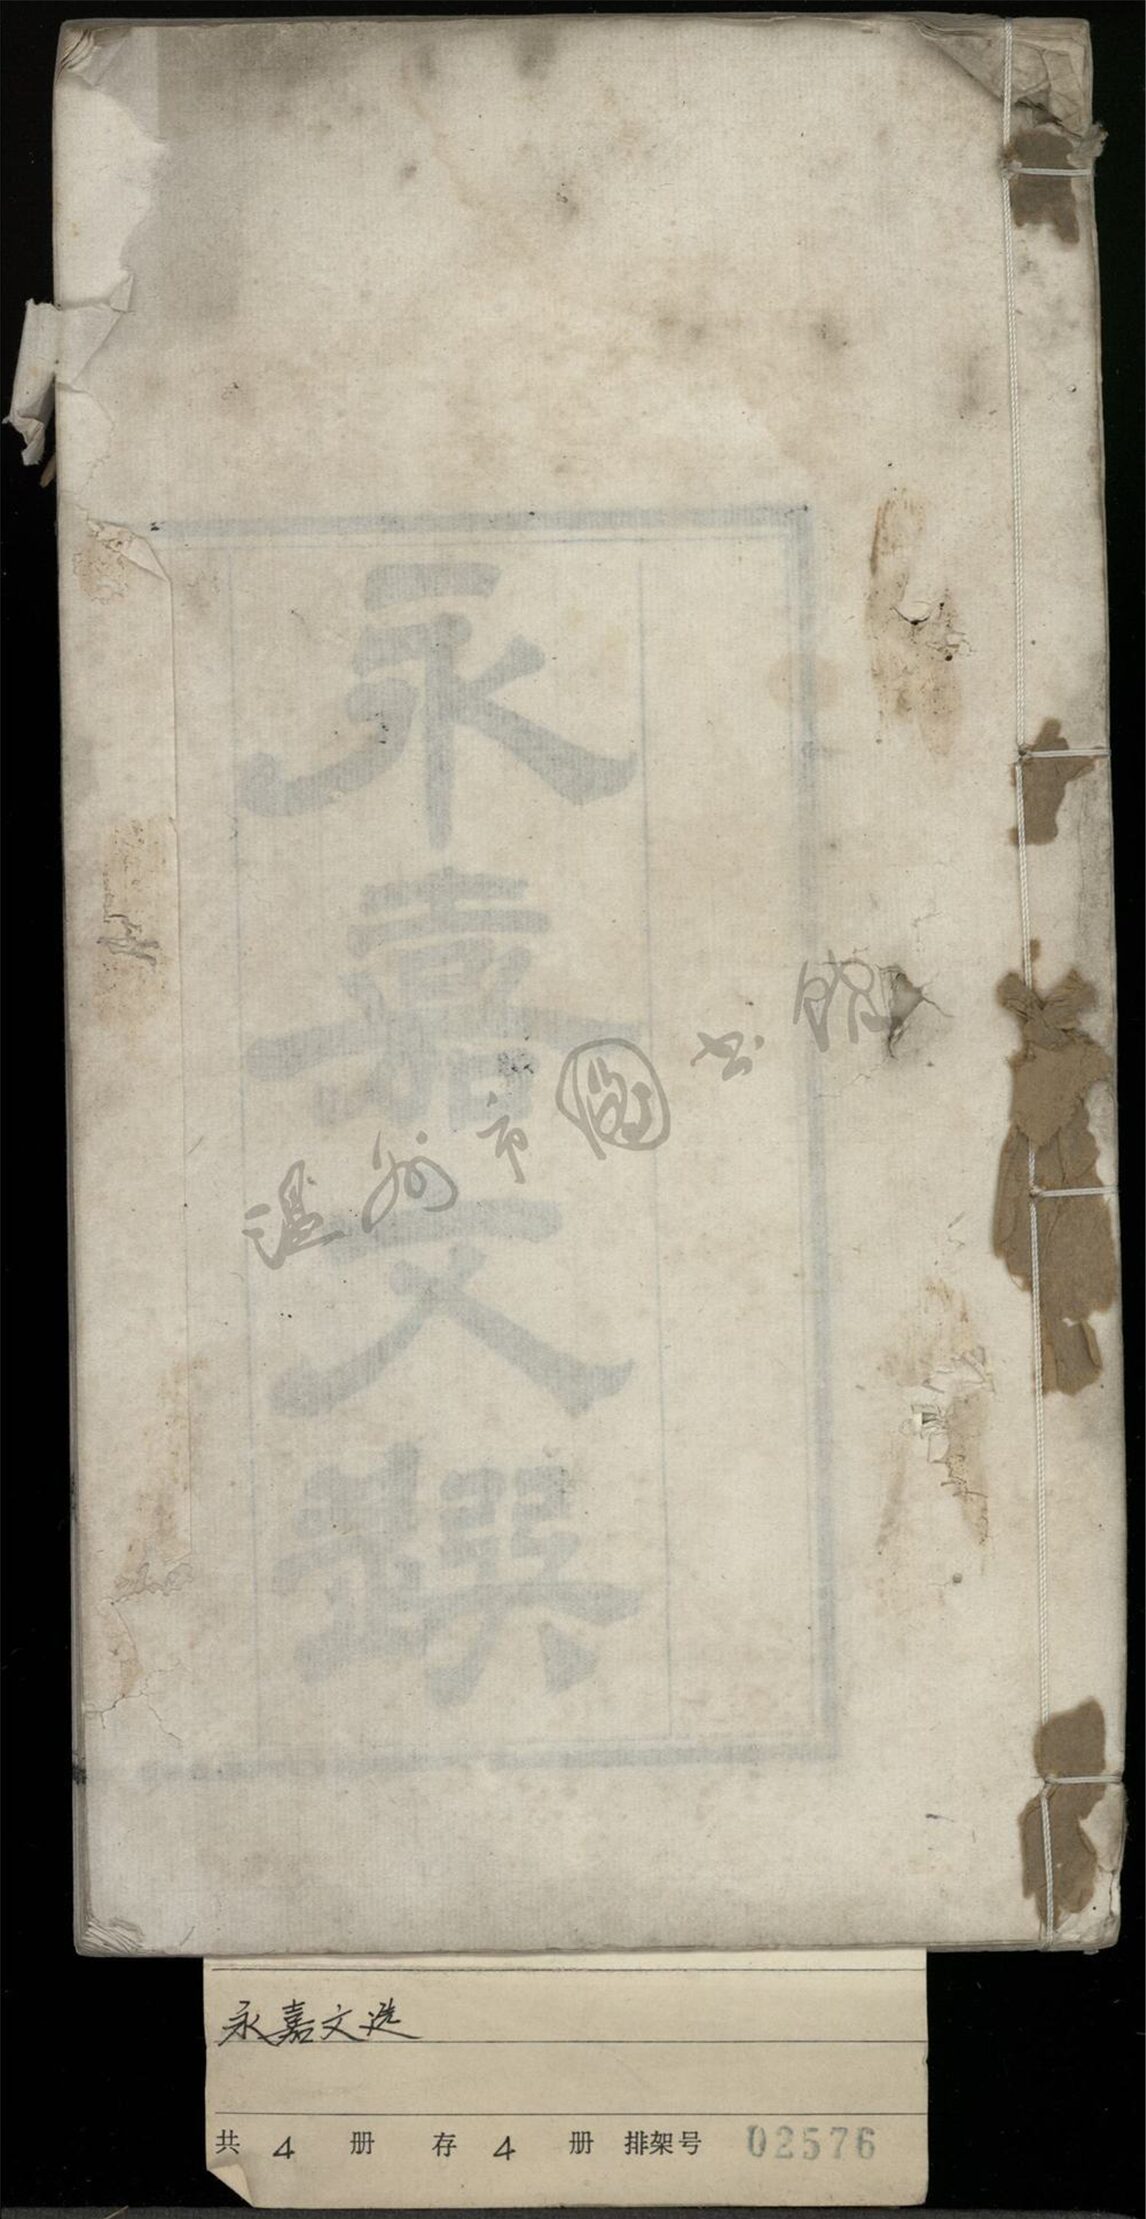 永嘉文
温州市图书馆
永嘉文选
共 4 册 存 4 册 排架号 02576